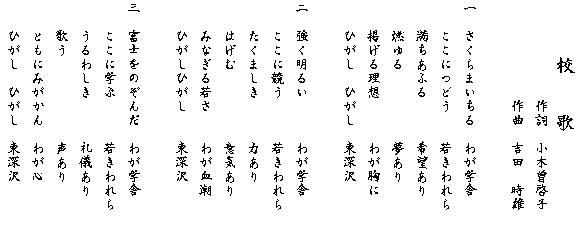 校　歌
作詞　小木曽啓子
作曲　吉田　時雄
一　さくらまいちる　わが学舎
ここにつどう　若きわれら
満ちあふる　希望あり
燃ゆる　夢あり
揚げる理想　わが胸に
ひがし　ひがし　東深沢
二　強く明るい　わが学舎
ここに競う　若きわれら
たくましき　力あり
はげむ　意気あり
みなぎる若さ　わが血潮
ひがしひがし　東深沢
三　富士をのぞんだ　わが学舎
ここに学ぶ　若きわれら
うるわしき　礼儀あり
歌う　声あり
ともにみがかん　わが心
ひがし　ひがし　東深沢